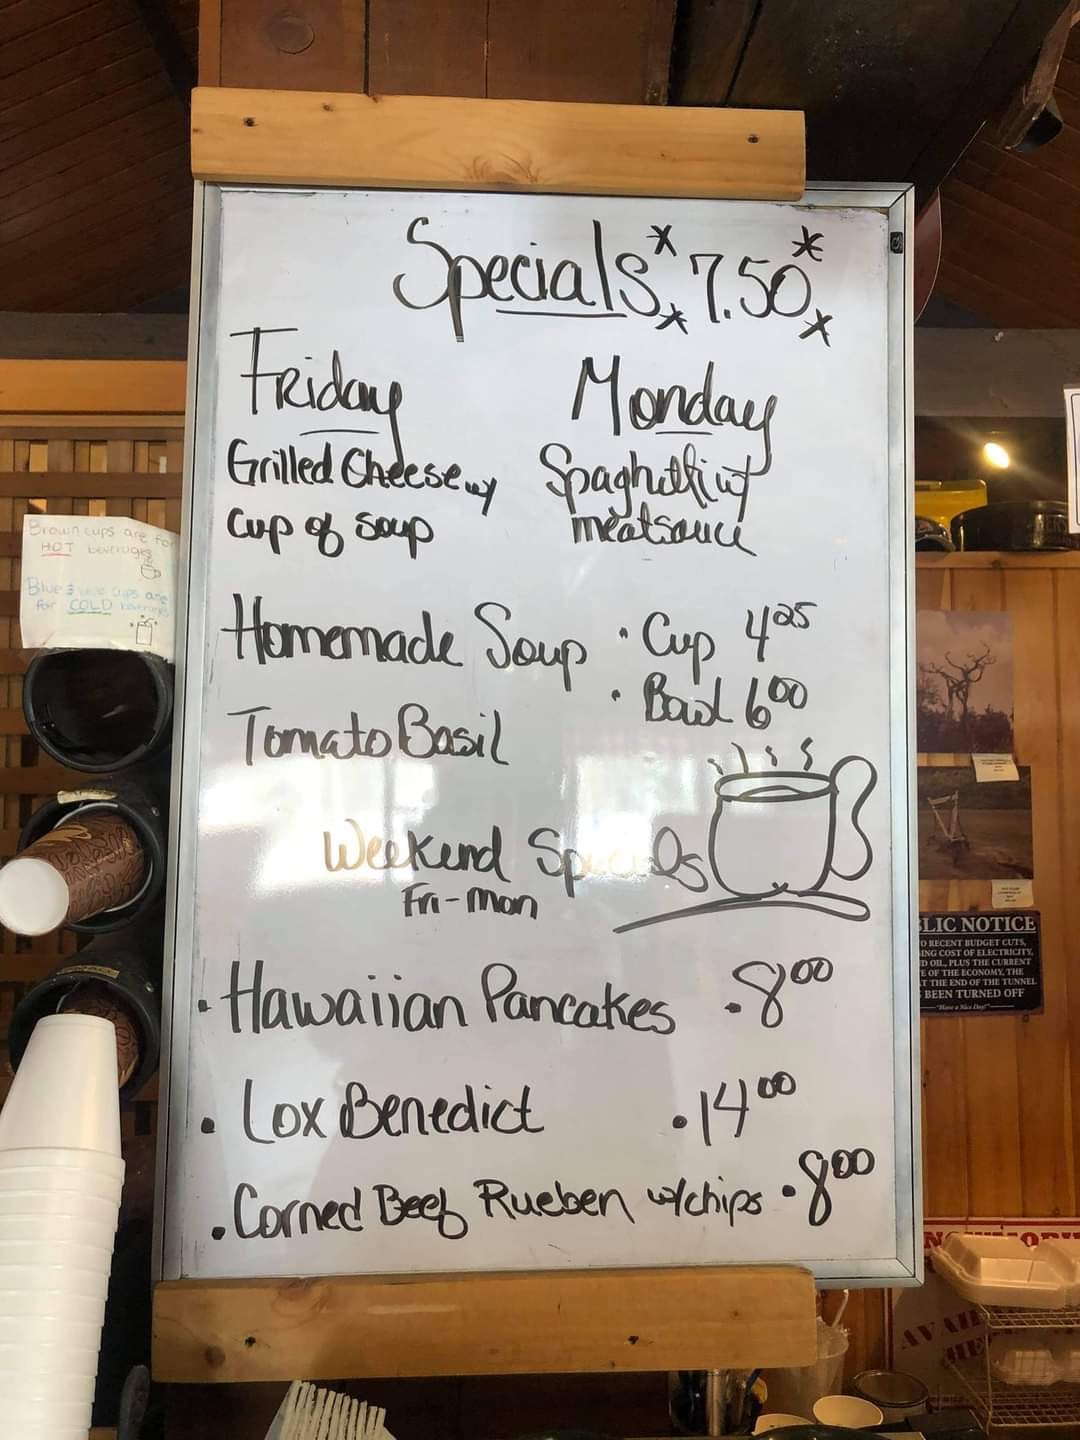 Specials 7.50
Friday
Grilled Cheese w/
Cup of Soup
Monday
Spaghetti w/
meatsauce
Homemade Soup · Cup 4 25
· Bowl 6 00
Tomato Basil
Weekend Specials
Fri-Mon
· Hawaiian Pancakes · 8 00
· Lox Benedict · 14 00
· Corned Beef Rueben w/chips · 8 00
Brown cups are for
HOT beverages
Blue & cups are
for COLD beverages
LIC NOTICE
O RECENT BUDGET CUTS,
ING COST OF ELECTRICITY,
D OIL, PLUS THE CURRENT
E OF THE ECONOMY, THE
T THE END OF THE TUNNEL
BEEN TURNED OFF
"Have a Nice Day!"